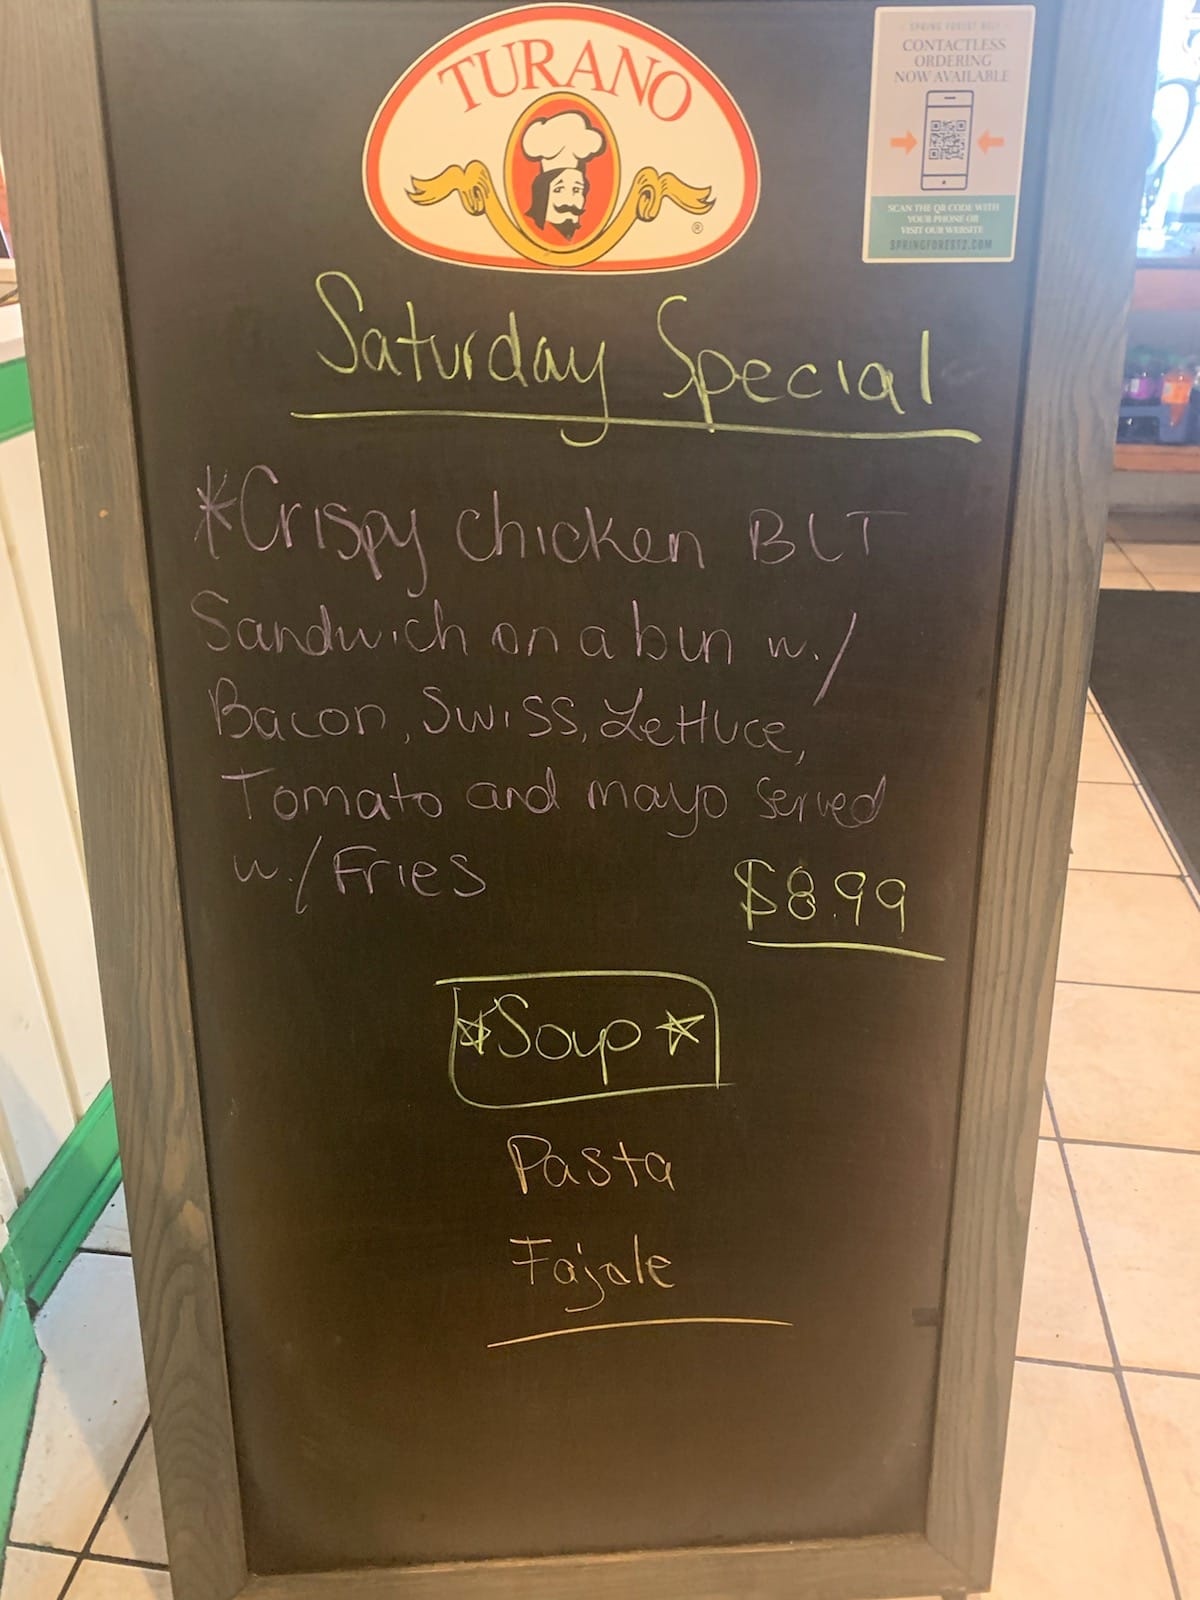 TURANO
®
SPRING FOREST DELI
CONTACTLESS
ORDERING
NOW AVAILABLE
SCAN THE QR CODE WITH
YOUR PHONE OR
VISIT OUR WEBSITE
SPRINGFOREST2.COM
Saturday Special
*Crispy chicken BLT
Sandwich on a bun w./
Bacon, Swiss, Lettuce,
Tomato and mayo Served
w./Fries
$8.99
☆Soup☆
Pasta
Fajole